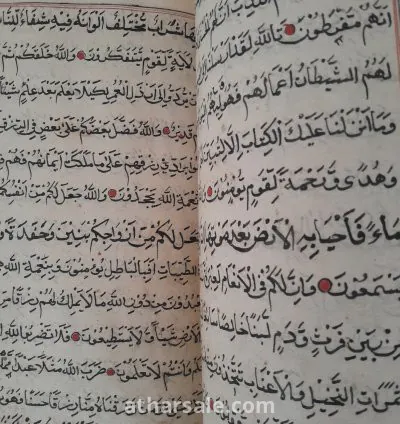 اَنَّهُمْ مُفْرَطُونَ تَاللهِ لَقَدْ اَرْسَلْنَا
لَهُمُ الشَّيْطَانُ اَعْمَالَهُمْ فَهُوَ
وَمَا اَنْزَلْنَا عَلَيْكَ الْكِتَابَ اِلَّا لِتُبَيِّنَ
وَهُدًى وَرَحْمَةً لِقَوْمٍ يُؤْمِنُونَ
مَاءً فَاَحْيَا بِهِ الْاَرْضَ بَعْدَ مَوْتِهَا
يَسْمَعُونَ وَاِنَّ لَكُمْ فِي الْاَنْعَامِ
مِنْ بَيْنِ فَرْثٍ وَدَمٍ لَبَنًا خَالِصًا
ثَمَرَاتِ النَّخِيلِ وَالْاَعْنَابِ تَتَّخِذُونَ
شَرَابٌ مُخْتَلِفٌ اَلْوَانُهُ فِيهِ شِفَاءٌ لِلنَّاسِ
لَاٰيَةً لِقَوْمٍ يَتَفَكَّرُونَ وَاللهُ خَلَقَكُمْ ثُمَّ
اَرْذَلِ الْعُمُرِ لِكَيْلَا يَعْلَمَ بَعْدَ عِلْمٍ شَيْئًا
قَدِيرٌ وَاللهُ فَضَّلَ بَعْضَكُمْ عَلَى بَعْضٍ فِي الرِّزْقِ
رِزْقِهِمْ عَلَى مَا مَلَكَتْ اَيْمَانُهُمْ فَهُمْ
اللهِ يَجْحَدُونَ وَاللهُ جَعَلَ لَكُمْ مِنْ اَنْفُسِكُمْ
جَعَلَ لَكُمْ مِنْ اَزْوَاجِكُمْ بَنِينَ وَحَفَدَةً
الطَّيِّبَاتِ اَفَبِالْبَاطِلِ يُؤْمِنُونَ وَبِنِعْمَةِ اللهِ
مِنْ دُونِ اللهِ مَا لَا يَمْلِكُ لَهُمْ رِزْقًا
وَالْاَرْضِ شَيْئًا وَلَا يَسْتَطِيعُونَ فَلَا تَضْرِبُوا لِلهِ
وَاَنْتُمْ لَا تَعْلَمُونَ ضَرَبَ اللهُ مَثَلًا عَبْدًا
رَزَقْنَاهُ مِنَّا رِزْقًا حَسَنًا فَهُوَ
atharsale.com